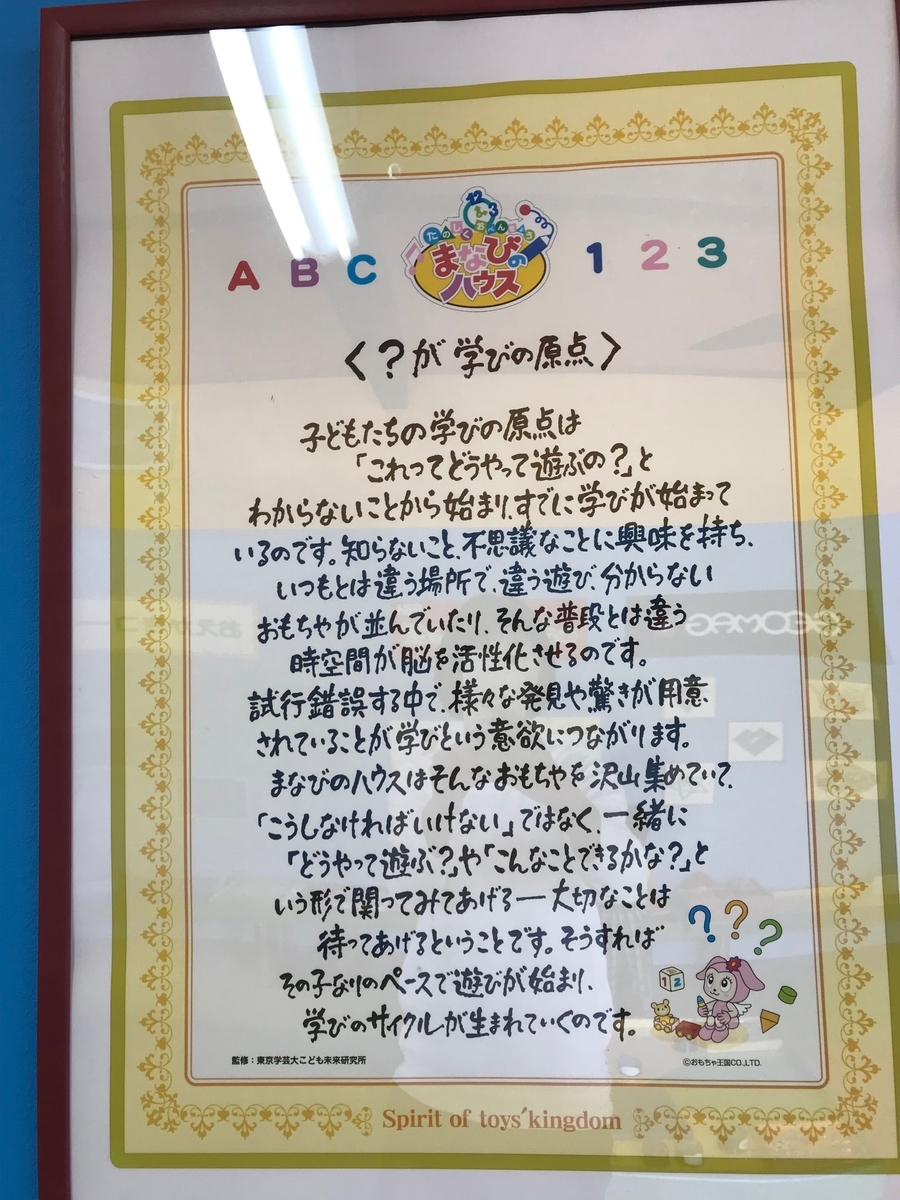 A B C
たのしくおべんきょう
まなびの
ハウス
1 2 3
〈？が学びの原点〉
子どもたちの学びの原点は
「これってどうやって遊ぶの？」と
わからないことから始まり、すでに学びが始まって
いるのです。知らないこと、不思議なことに興味を持ち、
いつもとは違う場所で、違う遊び、分からない
おもちゃが並んでいたり、そんな普段とは違う
時空間が脳を活性化させるのです。
試行錯誤する中で、様々な発見や驚きが用意
されていることが学びという意欲につながります。
まなびのハウスはそんなおもちゃを沢山集めていて、
「こうしなければいけない」ではなく、一緒に
「どうやって遊ぶ？」や「こんなことできるかな？」と
いう形で関ってみてあげる―大切なことは
待ってあげるということです。そうすれば
その子なりのペースで遊びが始まり、
学びのサイクルが生まれていくのです。
? ? ?
1 2
監修：東京学芸大こども未来研究所
©おもちゃ王国CO.,LTD.
Spirit of toys' kingdom